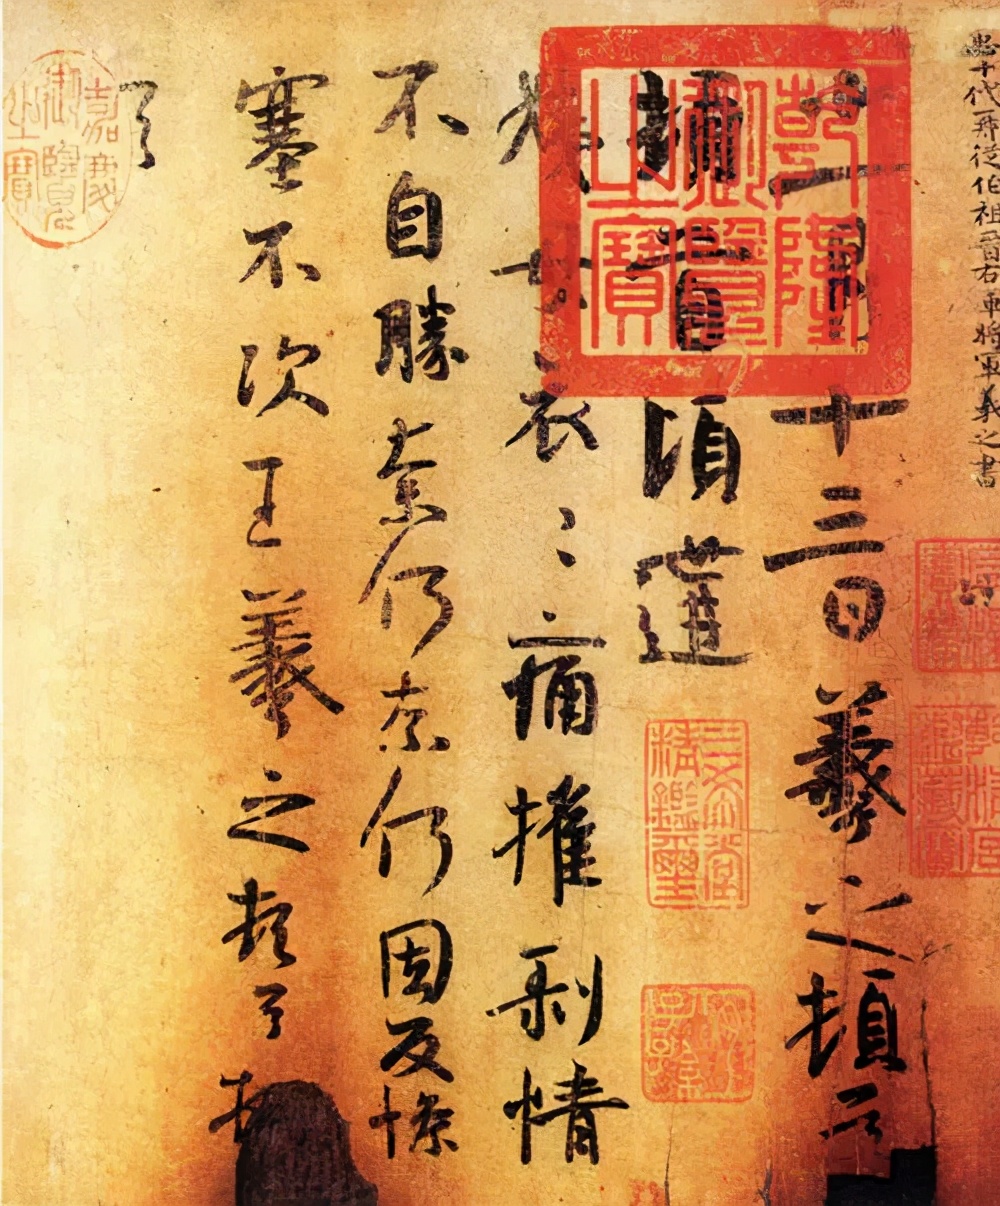 十代再從伯祖晉右軍將軍羲之書
十一月十三日羲之頓首
頓首頃遘
姨母哀〻痛摧剝情
不自勝奈何奈何因反慘
塞不次王羲之頓首頓
首
乾隆御覽之寶
三希堂精鑑璽
宜子孫
嘉慶御覽之寶